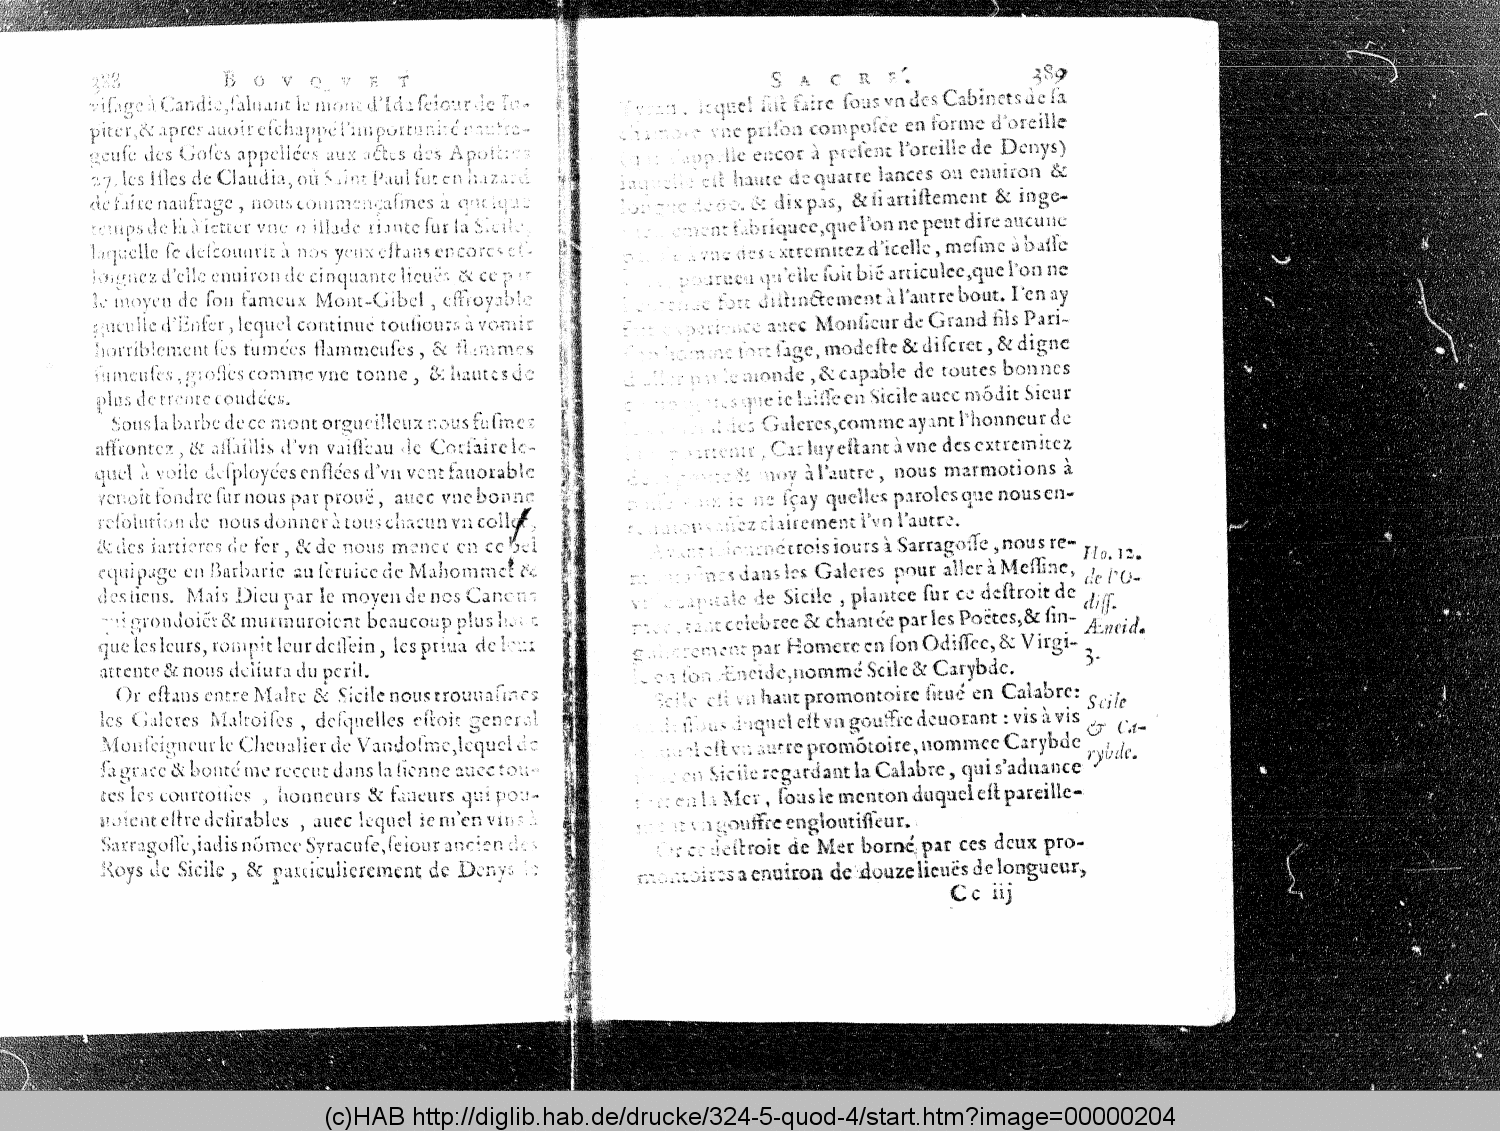 388 BOVQVET
visage à Candie, saluant le mont d'Ida seiour de Iu-
piter, & apres auoir eschappé l'importunité
geuse des Goses appellées aux actes des Apostres
27. les Isles de Claudia, où Saint Paul fut en hazard
de faire naufrage, nous commençasmes à quelque
temps de là à ietter vne œillade riante sur la Sicile,
laquelle se descouurit à nos yeux estans encores es-
loignez d'elle enuiron de cinquante lieuës & ce par
le moyen de son fameux Mont-Gibel, effroyable
gueulle d'Enfer, lequel continuë tousiours à vomir
horriblement ses fumées flammeuses, & flammes
fumeuses, grosses comme vne tonne, & hautes de
plus de trente coudées.
Sous la barbe de ce mont orgueilleux nous fusmes
affrontez, & assaillis d'vn vaisseau de Corsaire le-
quel à voile desployées enflées d'vn vent fauorable
venoit fondre sur nous par prouë, auec vne bonne
resolution de nous donner à tous chacun vn collet,
& des iartieres de fer, & de nous mener en ce bel
equipage en Barbarie au seruice de Mahommet &
des siens. Mais Dieu par le moyen de nos Canons
qui grondoiẽt & murmuroient beaucoup plus haut
que les leurs, rompit leur dessein, les priua de leur
attente & nous deliura du peril.
Or estans entre Malte & Sicile nous trouuasmes
les Galeres Maltoises, desquelles estoit general
Monseigneur le Cheualier de Vandosme, lequel de
sa grace & bonté me receut dans la sienne auec tou-
tes les courtoisies, honneurs & faueurs qui pou-
uoient estre desirables, auec lequel ie m'en vins à
Sarragosse, iadis nõmee Syracuse, seiour ancien des
Roys de Sicile, & particulierement de Denys le
SACRÉ. 389
Tyran, lequel fit faire sous vn des Cabinets de sa
vne prison composee en forme d'oreille
encor à present l'oreille de Denys)
laquelle est haute de quatre lances ou enuiron &
& dix pas, & si artistement & inge-
fabriquee, que l'on ne peut dire aucune
à vne des extremitez d'icelle, mesme à basse
pourueu qu'elle soit biẽ articulee, que l'on ne
fort distinctement à l'autre bout. I'en ay
auec Monsieur de Grand fils Pari-
homme fort sage, modeste & discret, & digne
le monde, & capable de toutes bonnes
que ie laisse en Sicile auec mõdit Sieur
des Galeres, comme ayant l'honneur de
Car luy estant à vne des extremitez
& moy à l'autre, nous marmotions à
ie ne sçay quelles paroles que nous en-
assez clairement l'vn l'autre.
trois iours à Sarragosse, nous re-
dans les Galeres pour aller à Messine,
capitale de Sicile, plantee sur ce destroit de
mer tant celebree & chantée par les Poëtes, & sin-
gulierement par Homere en son Odissee, & Virgi-
le en son Æneide, nommé Scile & Carybde.
Scile est vn haut promontoire situé en Calabre:
duquel est vn gouffre deuorant: vis à vis
est vn autre promõtoire, nommee Carybde
en Sicile regardant la Calabre, qui s'aduance
en la Mer, sous le menton duquel est pareille-
ment vn gouffre engloutisseur.
Or ce destroit de Mer borné par ces deux pro-
montoires a enuiron de douze lieuës de longueur,
Cc iij
Ho. 12.
de l'O-
diss.
Æneid.
3.
Scile
& Ca-
rybde.
(c)HAB http://diglib.hab.de/drucke/324-5-quod-4/start.htm?image=00000204